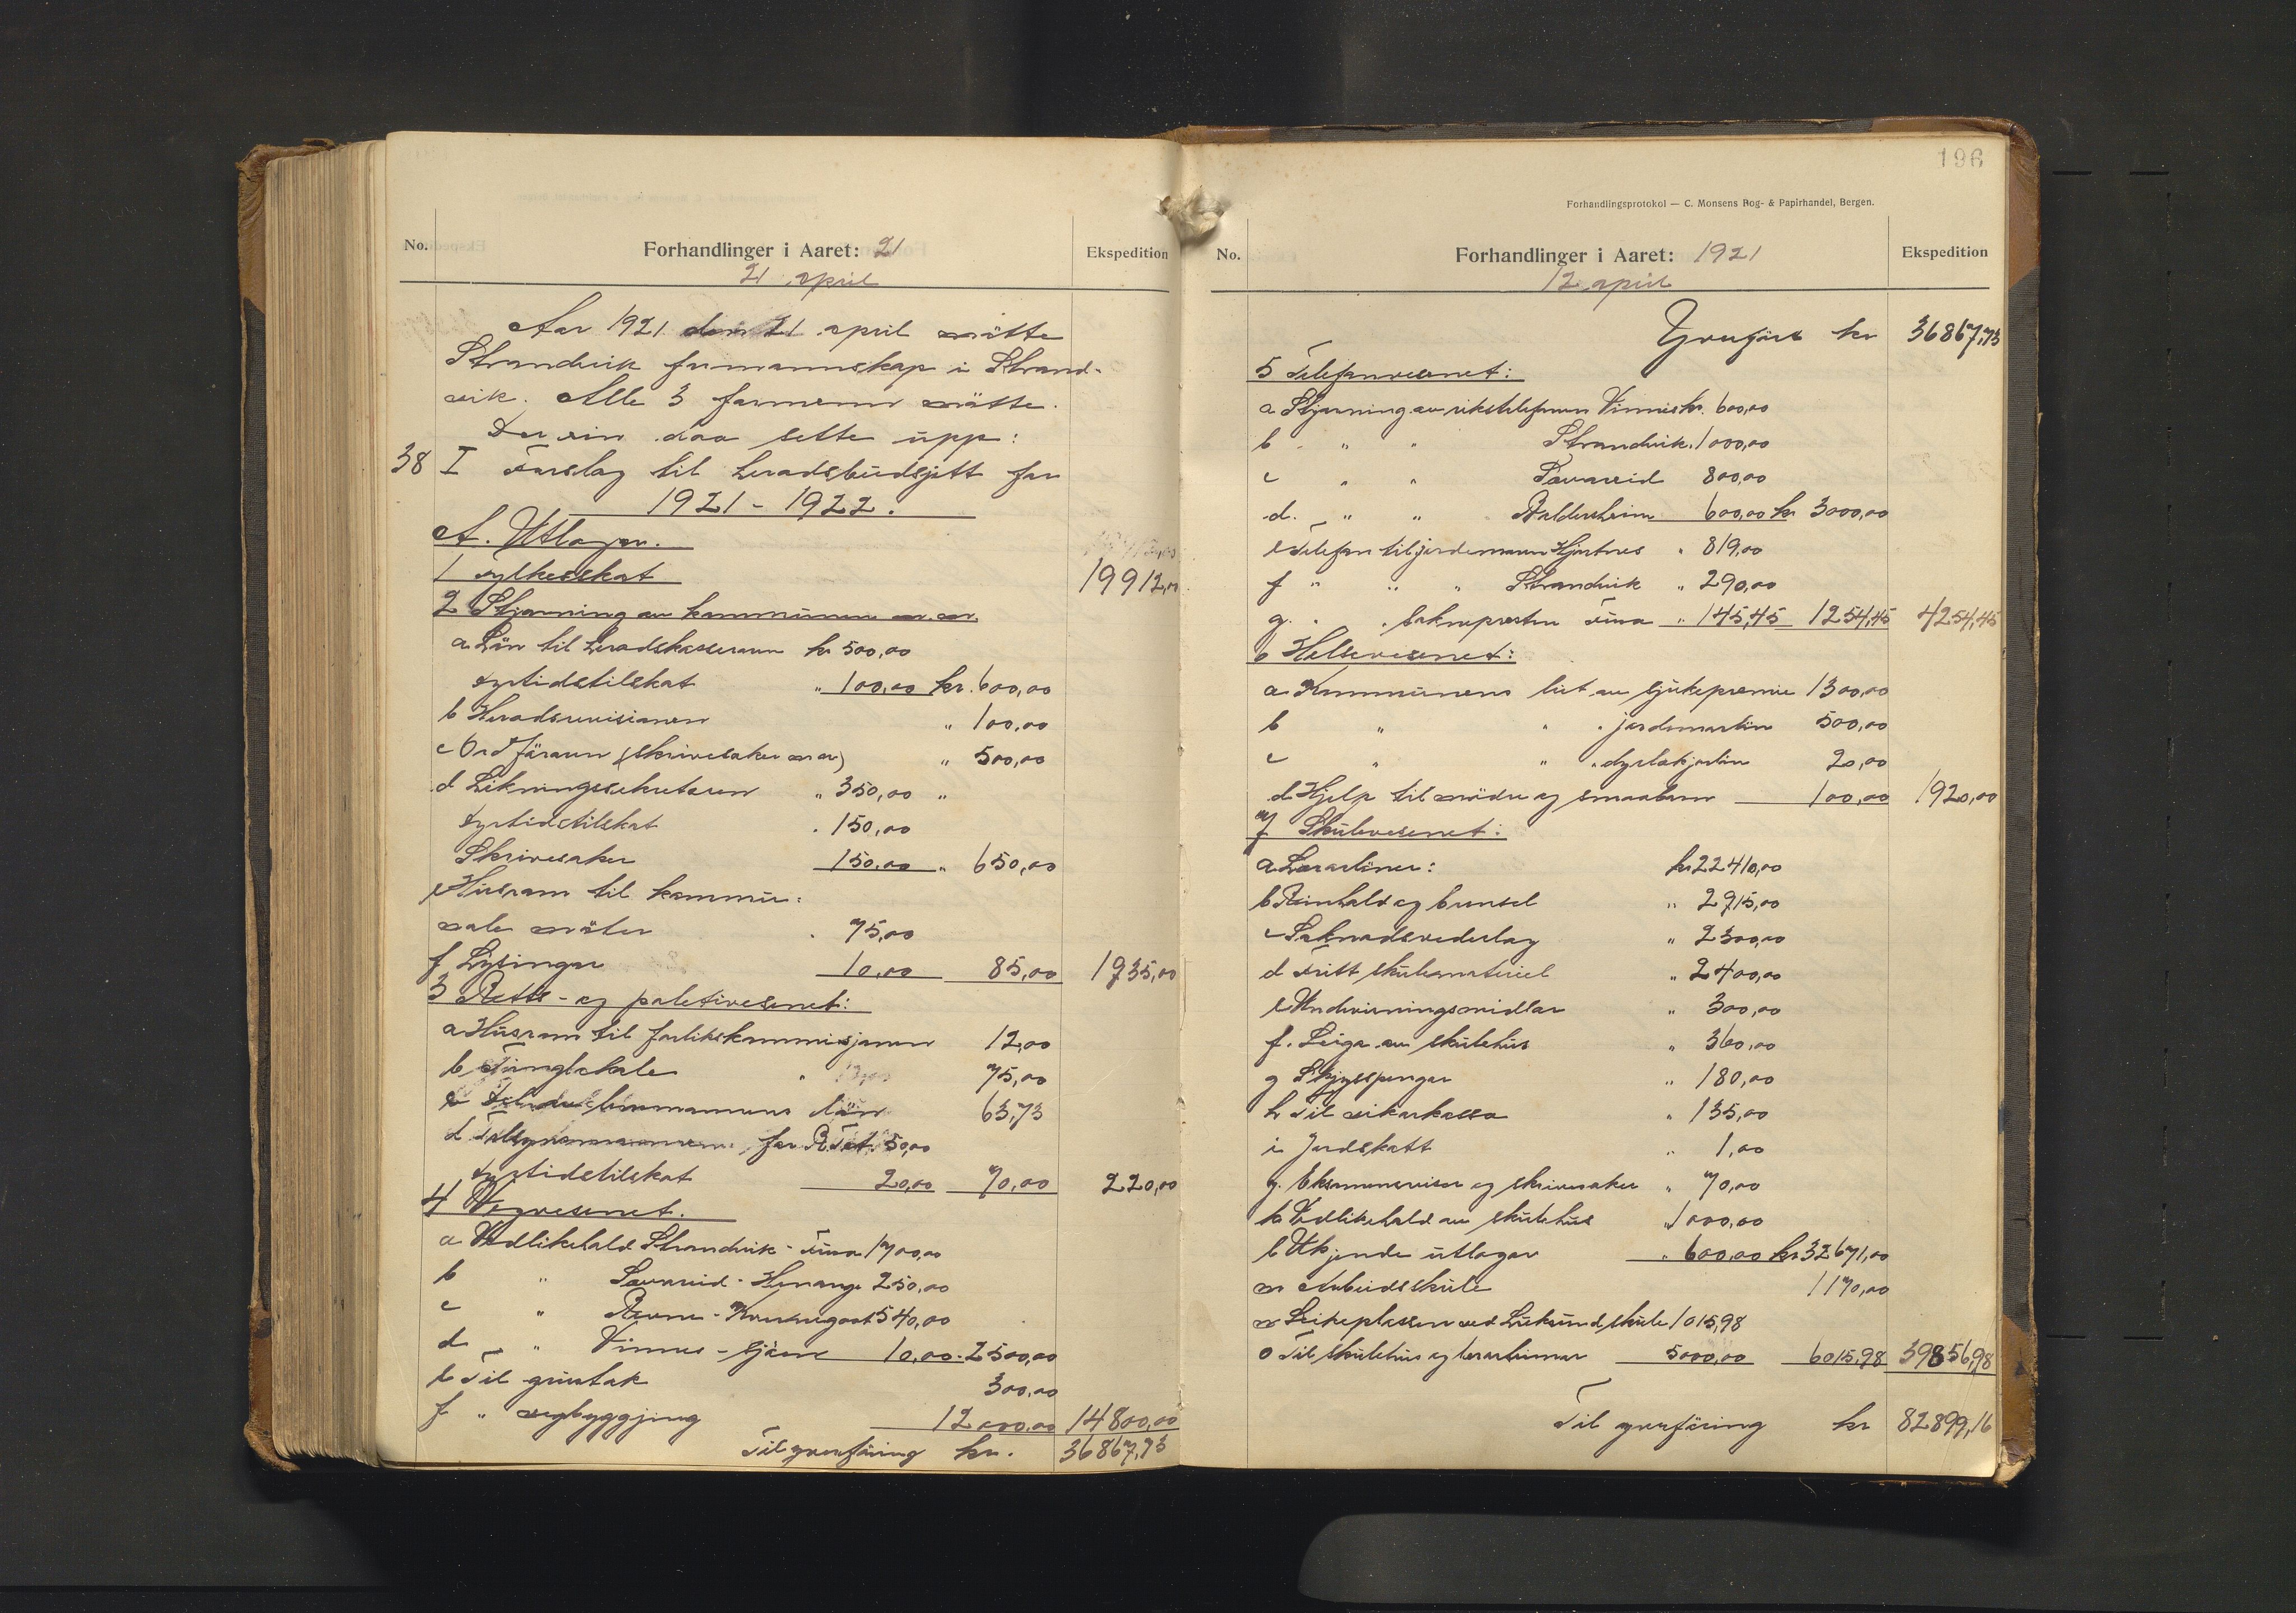 No.
Forhandlinger i Aaret: 21
Ekspedition
21 april
Aar 1921 den 21 april mötte
Strandvik formannskap i Strand-
vik. Alle 3 formenn mötte.
Dei vin daa sette upp:
38 I Forslag til heradsbudsjett for
1921 - 1922.
A. Utlagor.
1 Fylkesskat 19912,00
2 Stjorning av kommunen m.m.
a Lön til heradskasseraren kr 500,00
Dyrtidstilskot " 100,00 kr. 600,00
b Heradsrevisionen " 100,00
c Ordföraren (skrivesaker m m) " 500,00
d Likningssekretæren " 350,00 "
Dyrtidstilskot " 150,00
Skrivesaker 150,00 " 650,00
e Husrom til kommu-
nale möter " 75,00
f Lysingar 10,00 85,00 1935,00
3 Retts- og politivesenet:
a Husrom til forlikskommisjonen 12,00
b Tinglokale " 75,00
lensmannens lön 63,73
d for 50,00
Dyrtidstilskot 20,00 70,00 220,00
4 Vegvesenet.
a Vedlikehald Strandvik - Fusa 1700,00
b " Sævareid - Henanger 250,00
c " 540,00
d " Vinnes - sjöen 10,00 - 2500,00
e Til grustak 300,00
f " vegbyggjing 12000,00 14800,00
Til yverföring kr. 36867,73
196
Forhandlingsprotokol — C. Monsens Bog- & Papirhandel, Bergen.
No.
Forhandlinger i Aaret: 1921
Ekspedition
12 april
Yverfört kr 36867,73
5 Telefonvesenet:
a Stjorning av rikstelefonen Vinnes kr. 600,00
b " " Strandvik. 1000,00
c " " Sævareid 800,00
d. " " Baldersheim 600,00 kr 3000,00
e Telefon til jordemoren Hjartnes " 819,00
f " " " Strandvik " 290,00
g. " " soknepresten Fusa " 145,45 1254,45 4254,45
6 Helsevesenet:
a Kommunens lut av sjukepremie 1300,00
b " " " jordmorlön 500,00
c " " " dyrlækjarlön 20,00
d Hjelp til mödre og smaaborn 100,00 1920,00
7 Skulevesenet:
a Lærarlöner: kr 22410,00
b Reinhald og brensel " 2915,00
c Saknadsvederlag " 2300,00
d Fritt skulemateriel " 2400,00
e Undervisningsmidlar " 300,00
f. Leiga av skulehus " 360,00
g Skysspengar " 180,00
h Til vikarkassa " 135,00
i Jordskatt " 1,00
j. Eksamensvisor og skrivesaker " 70,00
k Vedlikehald av skulehus " 1000,00
l Ukjende utlagor " 600,00 kr 32671,00
m Arbeidsskule 1170,00
n Leikeplassen ved Leksund skule 1015,98
o Til skulehus og lærarheimar 5000,00 6015,98 39856,98
Til yverföring kr 82899,16